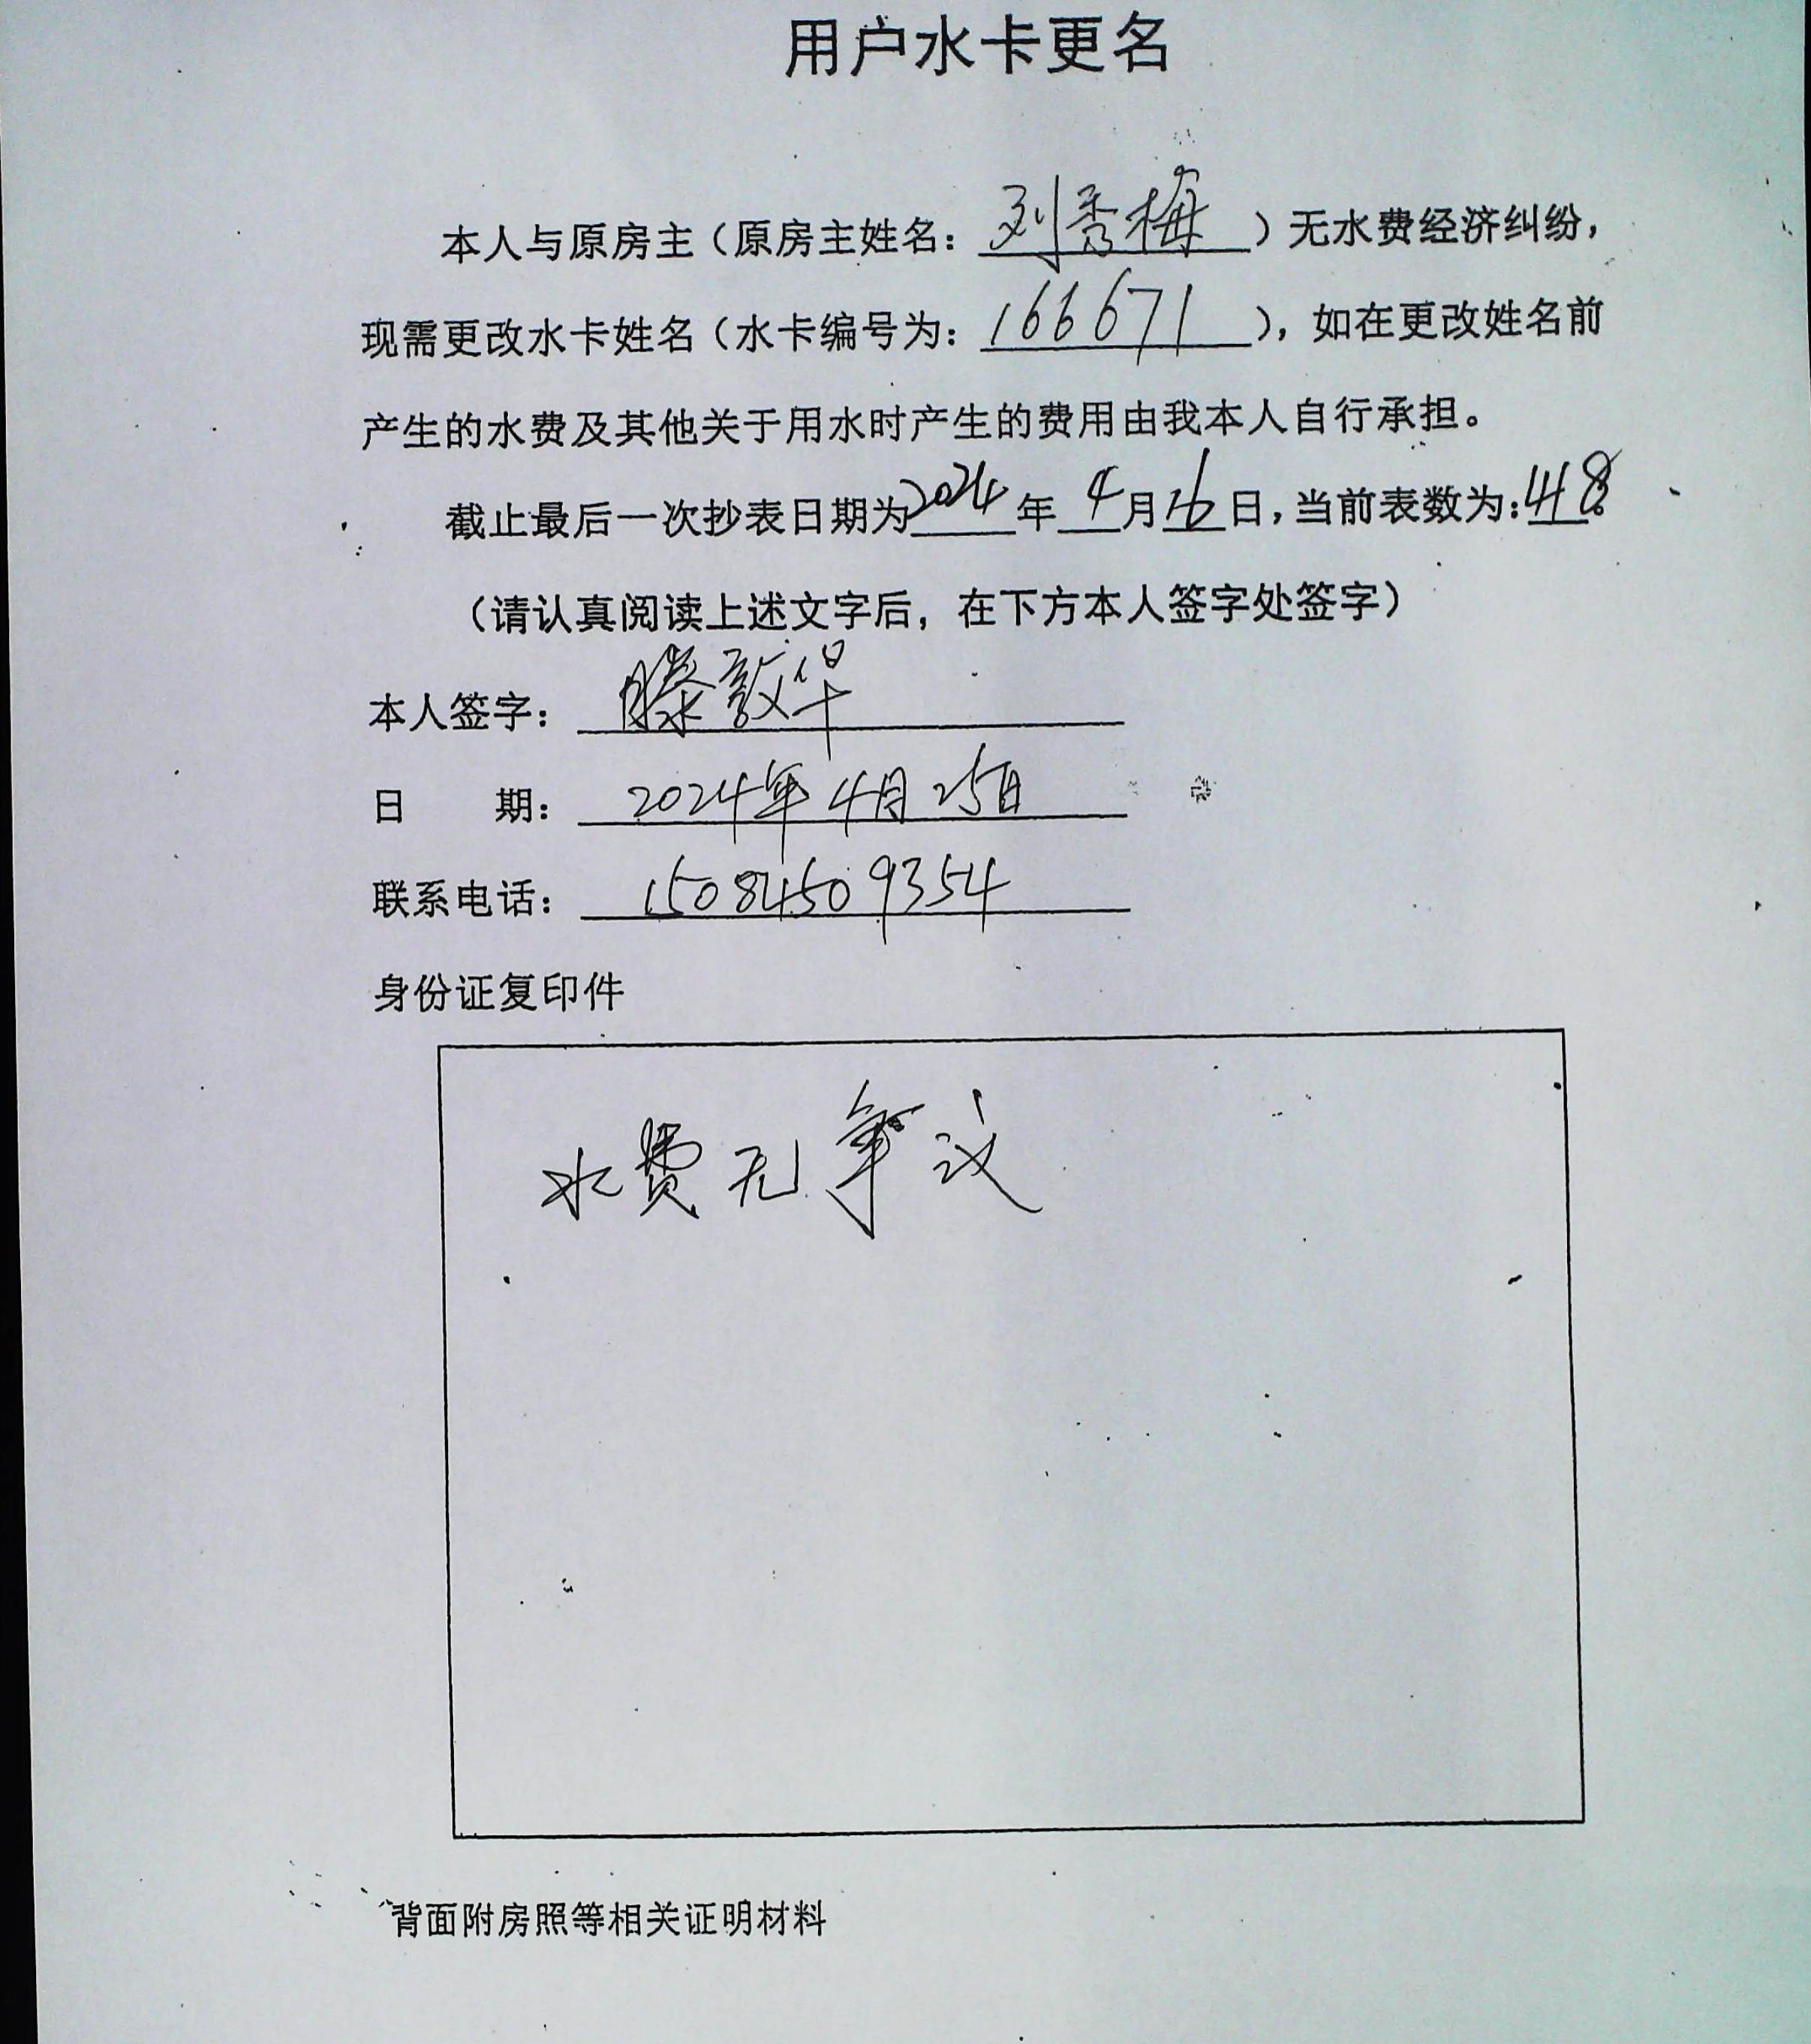 用户水卡更名
本人与原房主（原房主姓名：刘秀梅）无水费经济纠纷，
现需更改水卡姓名（水卡编号为：166671），如在更改姓名前
产生的水费及其他关于用水时产生的费用由我本人自行承担。
截止最后一次抄表日期为2024年4月16日，当前表数为：418
（请认真阅读上述文字后，在下方本人签字处签字）
本人签字：滕敦华
日 期：2024年4月25日
联系电话：15084509354
身份证复印件
水费无争议
背面附房照等相关证明材料